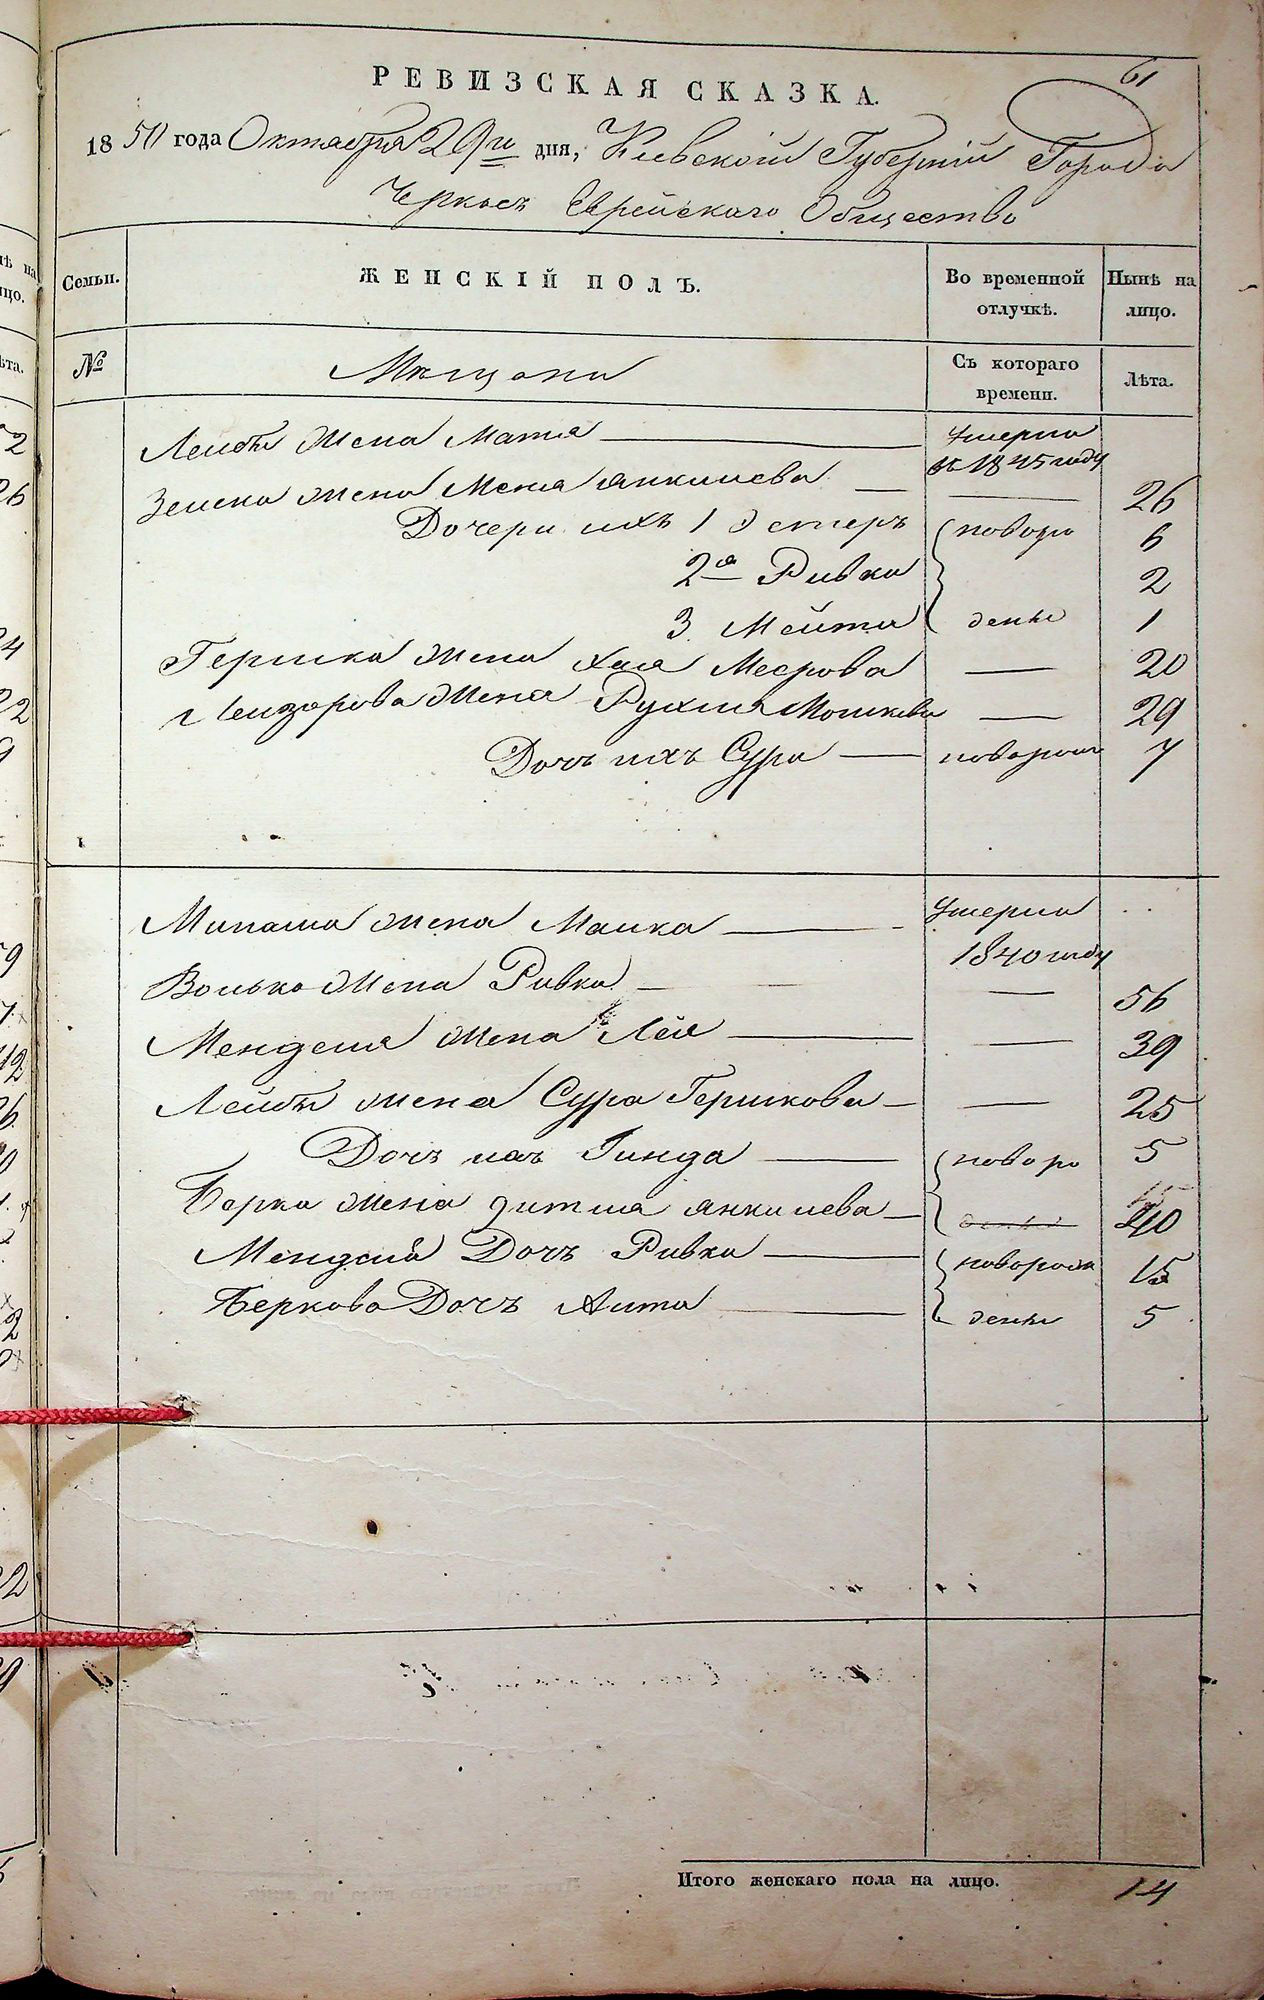 61
РЕВИЗСКАЯ СКАЗКА.
1850 года Октября 29го дня, Киевской Губерніи Города
Черкасъ Еврейского Общество
Семьи. ЖЕНСКІЙ ПОЛЪ. Во временной отлучкѣ. Нынѣ на лицо.
№ Мещани Съ котораго времени. Лѣта.
Лейбы Жена Матля Умерла
в 1845 году
Зельика жена Меня Янкилева 26
Дочери ихъ 1 Эстеръ новоро 6
2я Ривка 2
3 Мейта дены 1
Гершка Жена Хая Меерова 20
Лейзорова Жена Рухля Мошкова 29
Дочь ихъ Сура новорож 7
Минаша жена Малка Умерла
1840 году
Волько Жена Ривка 56
Менделя Жена Лея 39
Лейбы жена Сура Гершкова 25
Дочь ихъ Гинда новоро 5
Берка Жена Янкилева 40
Менделя Дочь Ривка новорож 15
Беркова Дочь Аита дены 5
Итого женскаго пола на лицо. 14